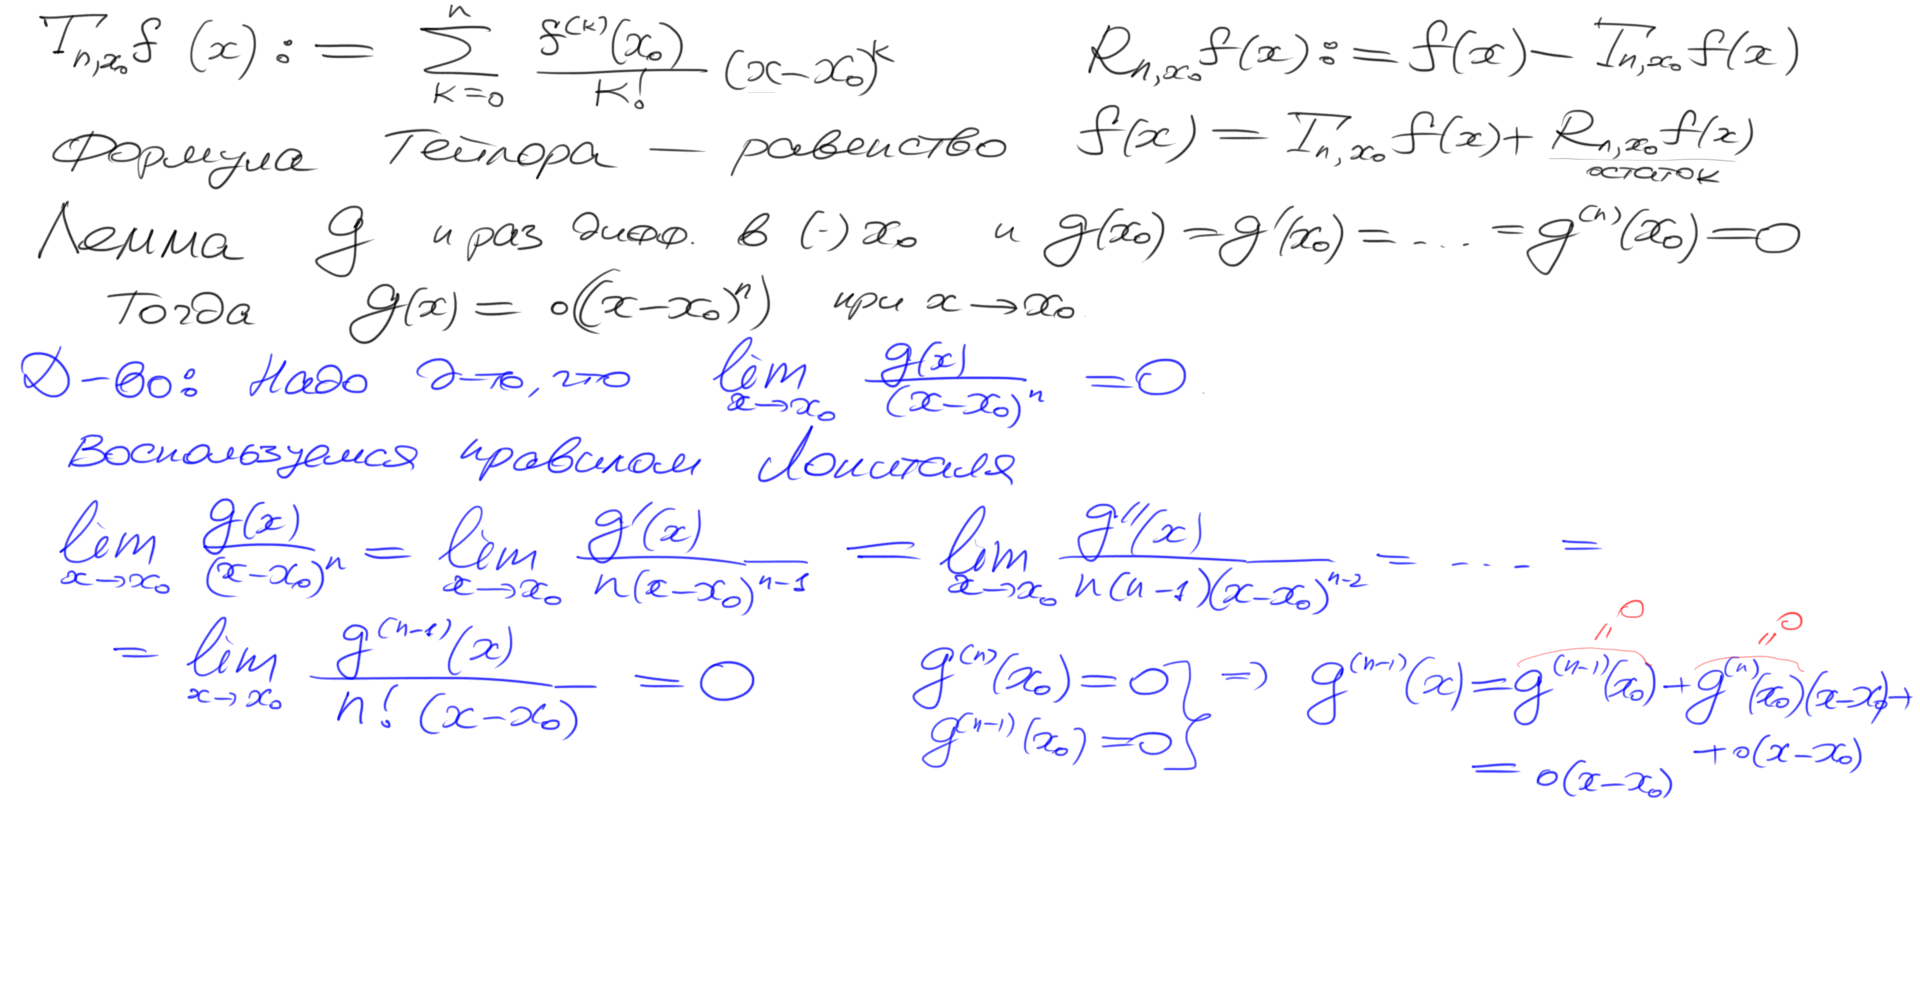 T_{n,x_0} f (x) := \sum_{k=0}^{n} \frac{f^{(k)}(x_0)}{k!} (x-x_0)^k    R_{n,x_0} f(x) := f(x) - T_{n,x_0} f(x)
Формула Тейлора — равенство f(x) = T_{n,x_0} f(x) + R_{n,x_0} f(x)
остаток
Лемма g n раз дифф. в (·) x_0 и g(x_0) = g'(x_0) = ... = g^{(n)}(x_0) = 0
Тогда g(x) = o((x-x_0)^n) при x→x_0
Д-во: Надо д-ть, что \lim_{x→x_0} \frac{g(x)}{(x-x_0)^n} = 0
Воспользуемся правилом Лопиталя
\lim_{x→x_0} \frac{g(x)}{(x-x_0)^n} = \lim_{x→x_0} \frac{g'(x)}{n(x-x_0)^{n-1}} = \lim_{x→x_0} \frac{g''(x)}{n(n-1)(x-x_0)^{n-2}} = ... =
= \lim_{x→x_0} \frac{g^{(n-1)}(x)}{n! (x-x_0)} = 0    g^{(n)}(x_0) = 0 } ⇒ g^{(n-1)}(x) = g^{(n-1)}(x_0) + g^{(n)}(x_0)(x-x_0) +
=0 =0
g^{(n-1)}(x_0) = 0 }    + o(x-x_0)
= o(x-x_0)